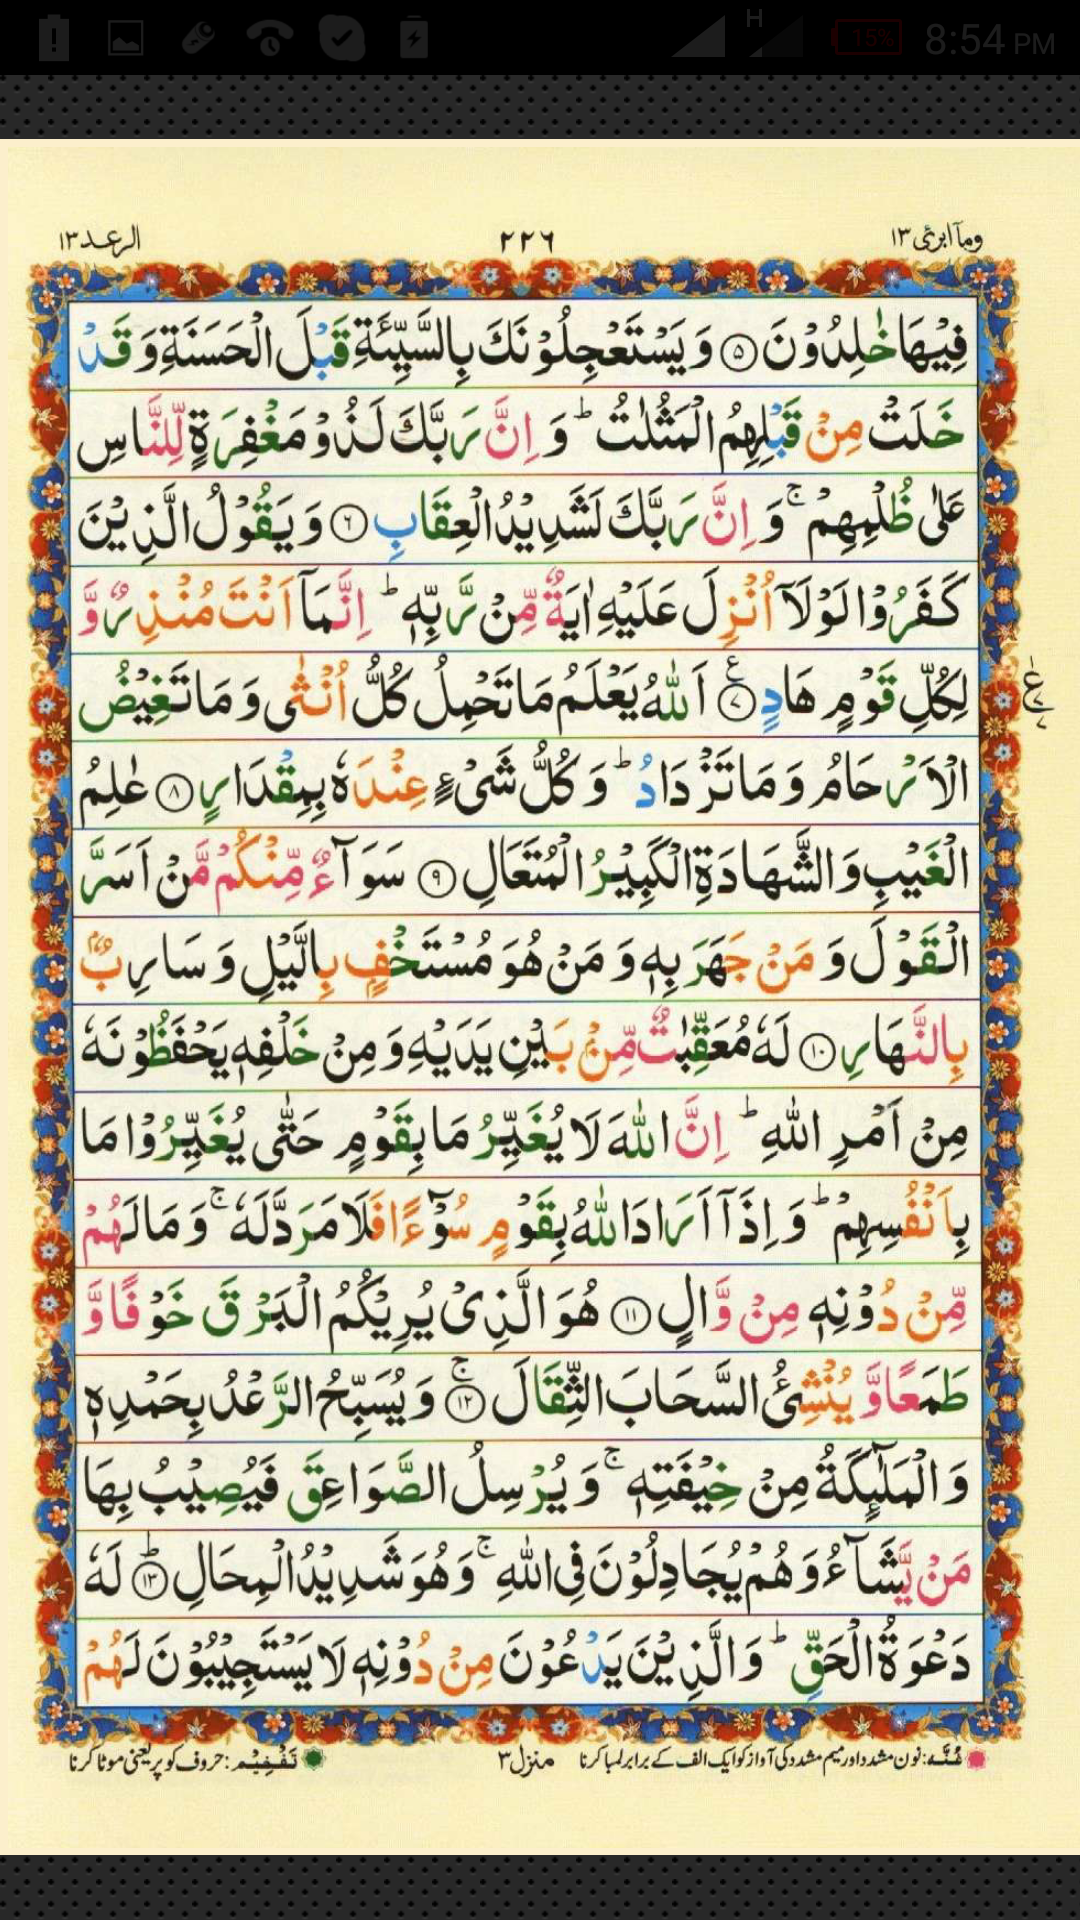 H 15% 8:54 PM
ومآ ابرئ ١٣ ٢٢٦ الرعد ١٣
فِيْهَا خٰلِدُوْنَ ۝۵ وَ يَسْتَعْجِلُوْنَكَ بِالسَّيِّئَةِ قَبْلَ الْحَسَنَةِ وَ قَدْ
خَلَتْ مِنْ قَبْلِهِمُ الْمَثُلٰتُ ؕ وَ اِنَّ رَبَّكَ لَذُوْ مَغْفِرَةٍ لِّلنَّاسِ
عَلٰى ظُلْمِهِمْ ۚ وَ اِنَّ رَبَّكَ لَشَدِيْدُ الْعِقَابِ ۝۶ وَ يَقُوْلُ الَّذِيْنَ
كَفَرُوْا لَوْلَاۤ اُنْزِلَ عَلَيْهِ اٰيَةٌ مِّنْ رَّبِّهٖ ؕ اِنَّمَاۤ اَنْتَ مُنْذِرٌ وَّ
لِكُلِّ قَوْمٍ هَادٍ ۝۷ ع اَللّٰهُ يَعْلَمُ مَا تَحْمِلُ كُلُّ اُنْثٰى وَ مَا تَغِيْضُ
الْاَرْحَامُ وَ مَا تَزْدَادُ ؕ وَ كُلُّ شَیْءٍ عِنْدَهٗ بِمِقْدَارٍ ۝۸ عٰلِمُ
الْغَيْبِ وَ الشَّهَادَةِ الْكَبِيْرُ الْمُتَعَالِ ۝۹ سَوَآءٌ مِّنْكُمْ مَّنْ اَسَرَّ
الْقَوْلَ وَ مَنْ جَهَرَ بِهٖ وَ مَنْ هُوَ مُسْتَخْفٍۭ بِالَّيْلِ وَ سَارِبٌۢ
بِالنَّهَارِ ۝۱۰ لَهٗ مُعَقِّبٰتٌ مِّنْۢ بَيْنِ يَدَيْهِ وَ مِنْ خَلْفِهٖ يَحْفَظُوْنَهٗ
مِنْ اَمْرِ اللّٰهِ ؕ اِنَّ اللّٰهَ لَا يُغَيِّرُ مَا بِقَوْمٍ حَتّٰى يُغَيِّرُوْا مَا
بِاَنْفُسِهِمْ ؕ وَ اِذَاۤ اَرَادَ اللّٰهُ بِقَوْمٍ سُوْٓءًا فَلَا مَرَدَّ لَهٗ ۚ وَ مَا لَهُمْ
مِّنْ دُوْنِهٖ مِنْ وَّالٍ ۝۱۱ هُوَ الَّذِیْ يُرِيْكُمُ الْبَرْقَ خَوْفًا وَّ
طَمَعًا وَّ يُنْشِئُ السَّحَابَ الثِّقَالَ ۝۱۲ۚ وَ يُسَبِّحُ الرَّعْدُ بِحَمْدِهٖ
وَ الْمَلٰٓئِكَةُ مِنْ خِيْفَتِهٖ ۚ وَ يُرْسِلُ الصَّوَاعِقَ فَيُصِيْبُ بِهَا
مَنْ يَّشَآءُ وَ هُمْ يُجَادِلُوْنَ فِی اللّٰهِ ۚ وَ هُوَ شَدِيْدُ الْمِحَالِ ۝۱۳ؕ لَهٗ
دَعْوَةُ الْحَقِّ ؕ وَ الَّذِيْنَ يَدْعُوْنَ مِنْ دُوْنِهٖ لَا يَسْتَجِيْبُوْنَ لَهُمْ
غُنَّه: نون مشدد اور میم مشدد کی آواز کو ایک الف کے برابر لمبا کرنا منزل ۳ تَفْخِیْم: حروف کو پر یعنی موٹا کرنا